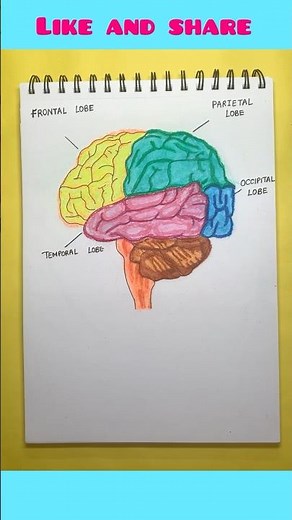 LIKE AND SHARE
FRONTAL LOBE
PARIETAL
LOBE
OCCIPITAL
LOBE
TEMPORAL LOBE